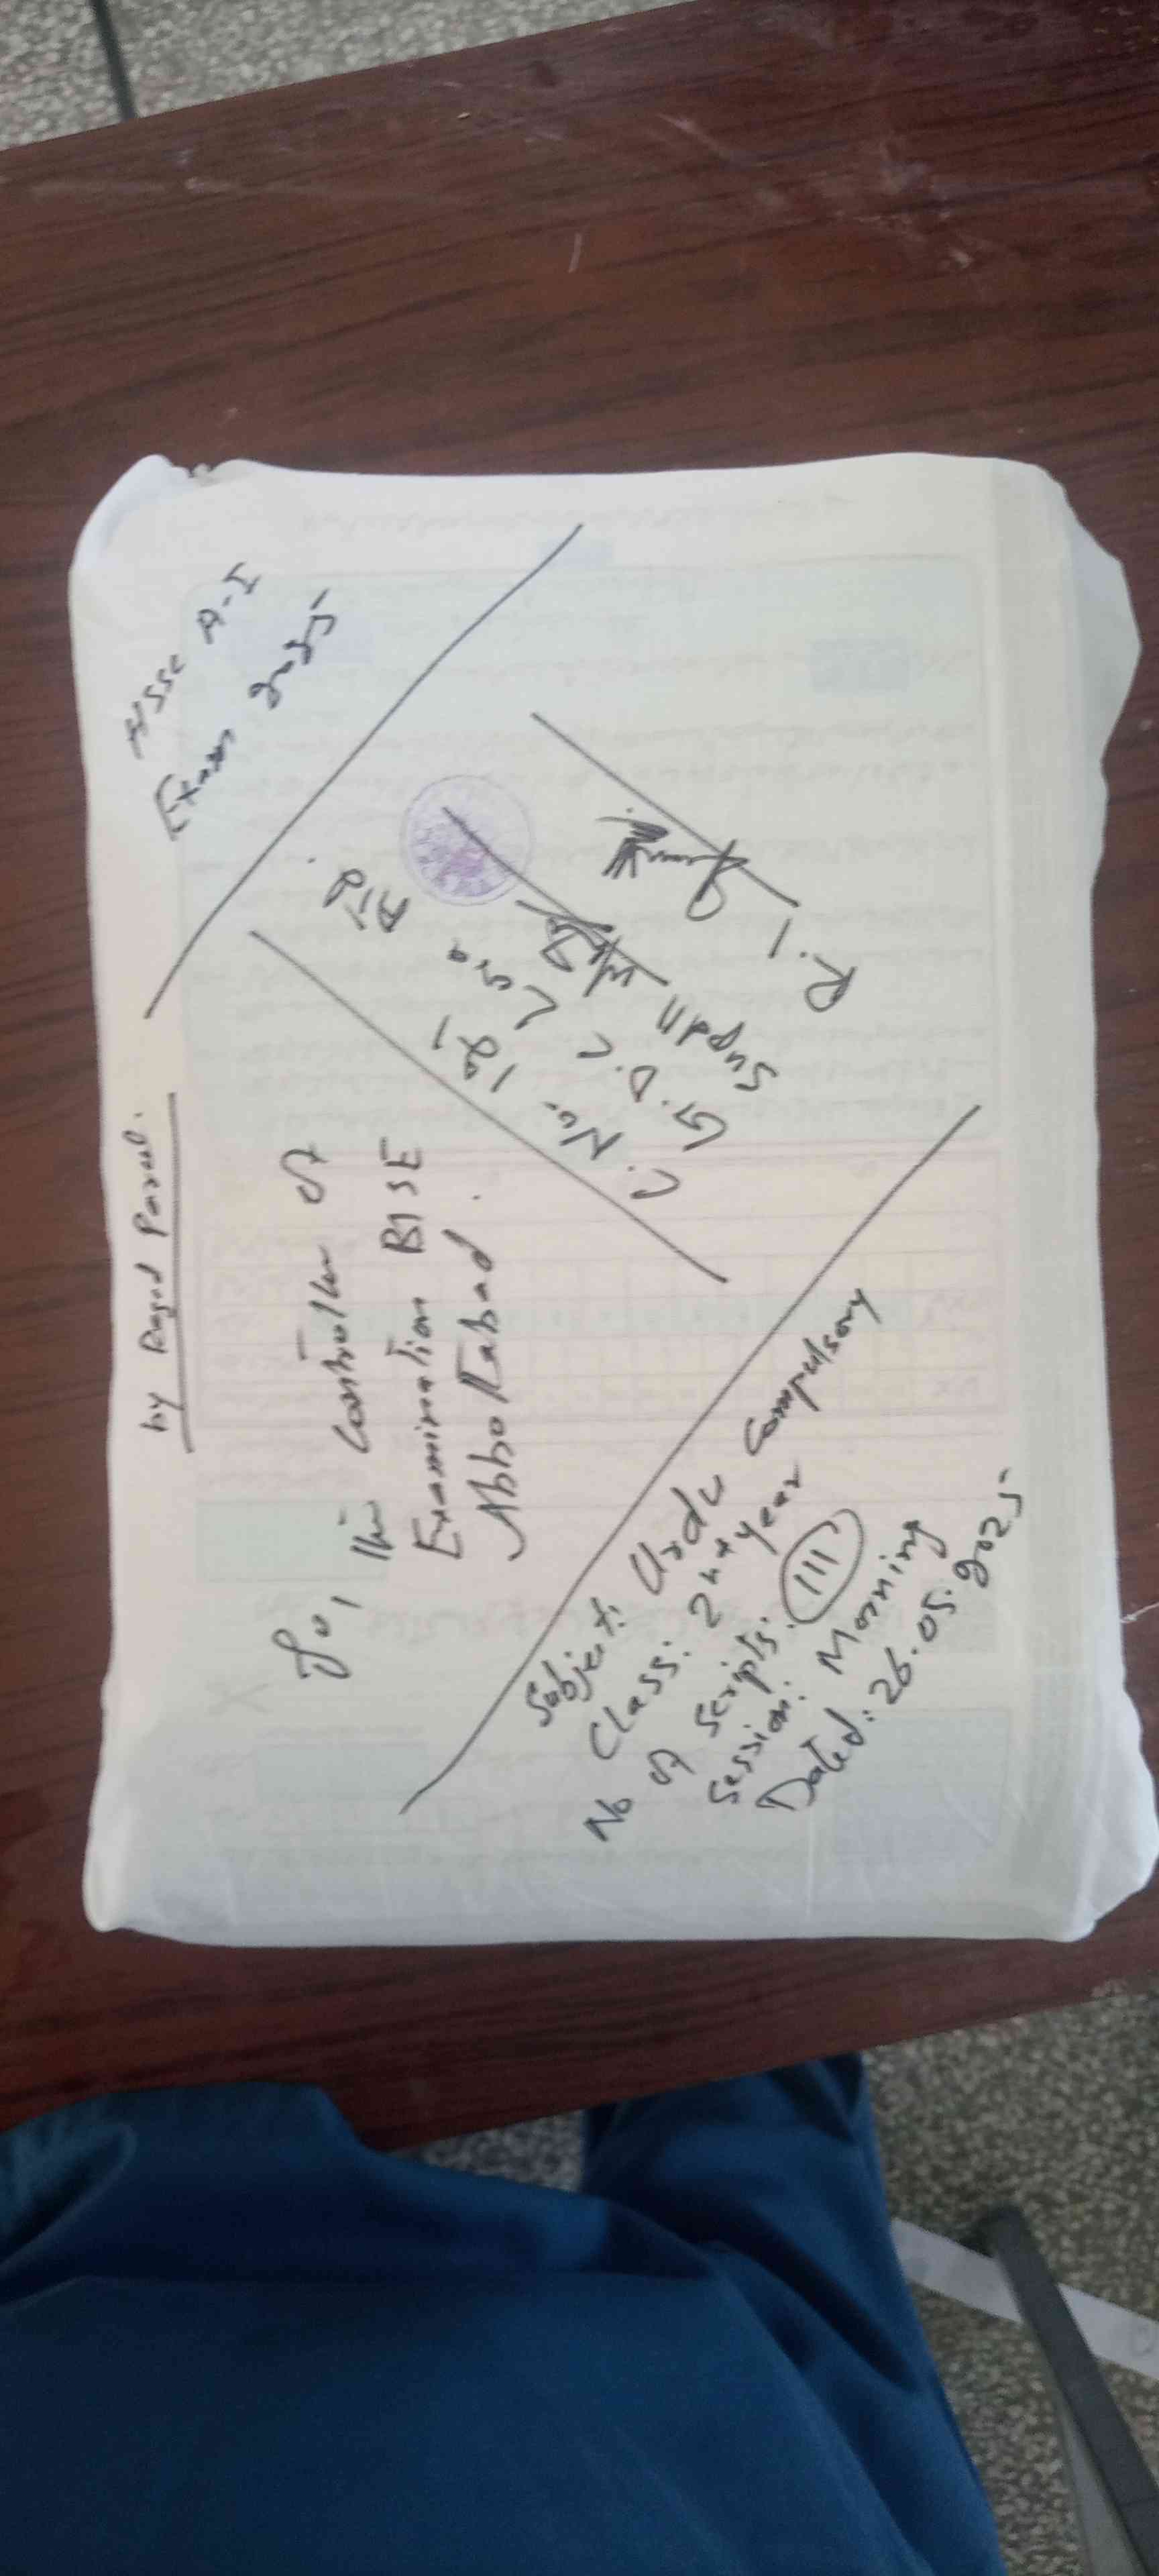 by Regd Parcel.
HSSC A-I
Exam 2025
To, The Controller of
Examination BISE
Abbottabad.
Subject: Urdu Compulsory
Class: 2nd year
No of Scripts: 111
Session: Morning
Dated: 26.05.2025
R.I
C. No.